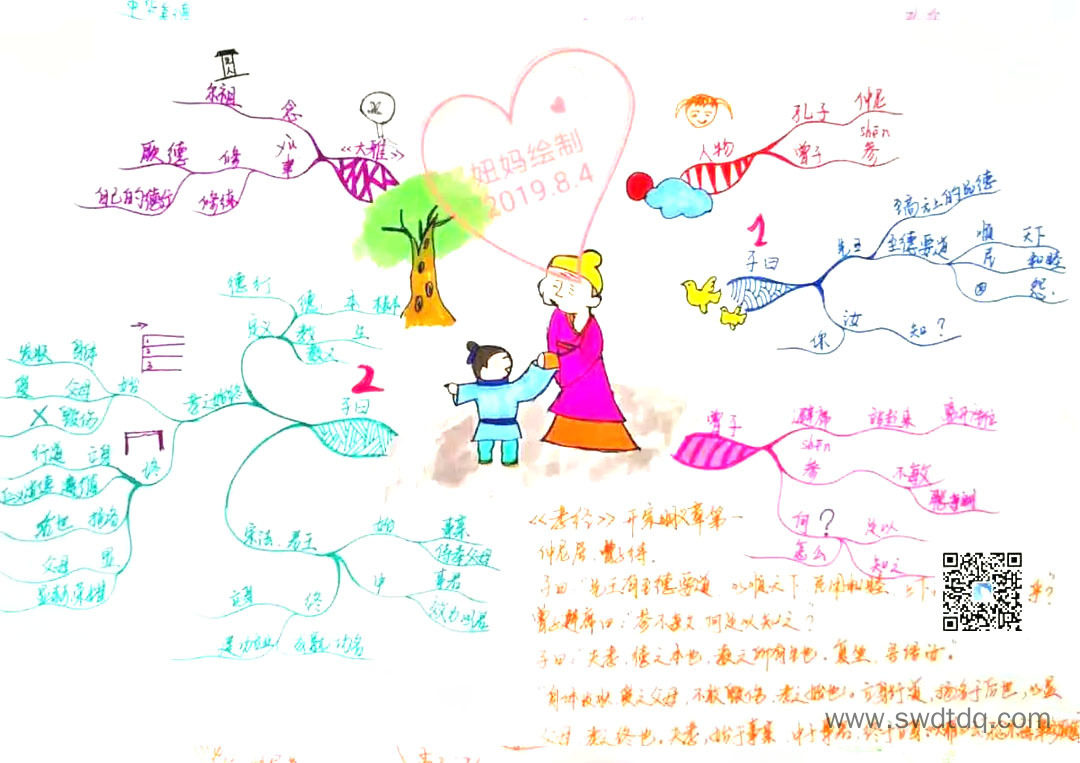 尔祖
念
聿
厥德
修
《大雅》
自己的德行
修德
妞妈绘制
2019.8.4
人物
孔子
仲尼
曾子
shēn
参
1
子曰
先王
至高无上的品德
至德要道
顺
天下
民
和睦
怨
汝
知？
你
德行
定义
德
本
根本
教
生
教义
2
子曰
孝之始终
始
发肤
身体
受
父母
X
毁伤
终
行道
立身
道德
后世
扬名
父母
显
始
事亲
侍奉父母
中
事君
终
立身
曾子
避席
站起来
离开座位
shēn
参
不敏
何？
足以
怎么
知之
《孝经》开宗明义章第一
仲尼居，曾子侍。
子曰："先王有至德要道，以顺天下，民用和睦，上下
曾子避席曰："参不敏，何足以知之？"
子曰："夫孝，德之本也，教之所由生也。复坐，吾语汝。"
"身体发肤，受之父母，不敢毁伤，孝之始也。立身行道，扬名于后世，以显
父母，孝之终也。夫孝，始于事亲，中于事君，终于立身。
www.swdtdq.com